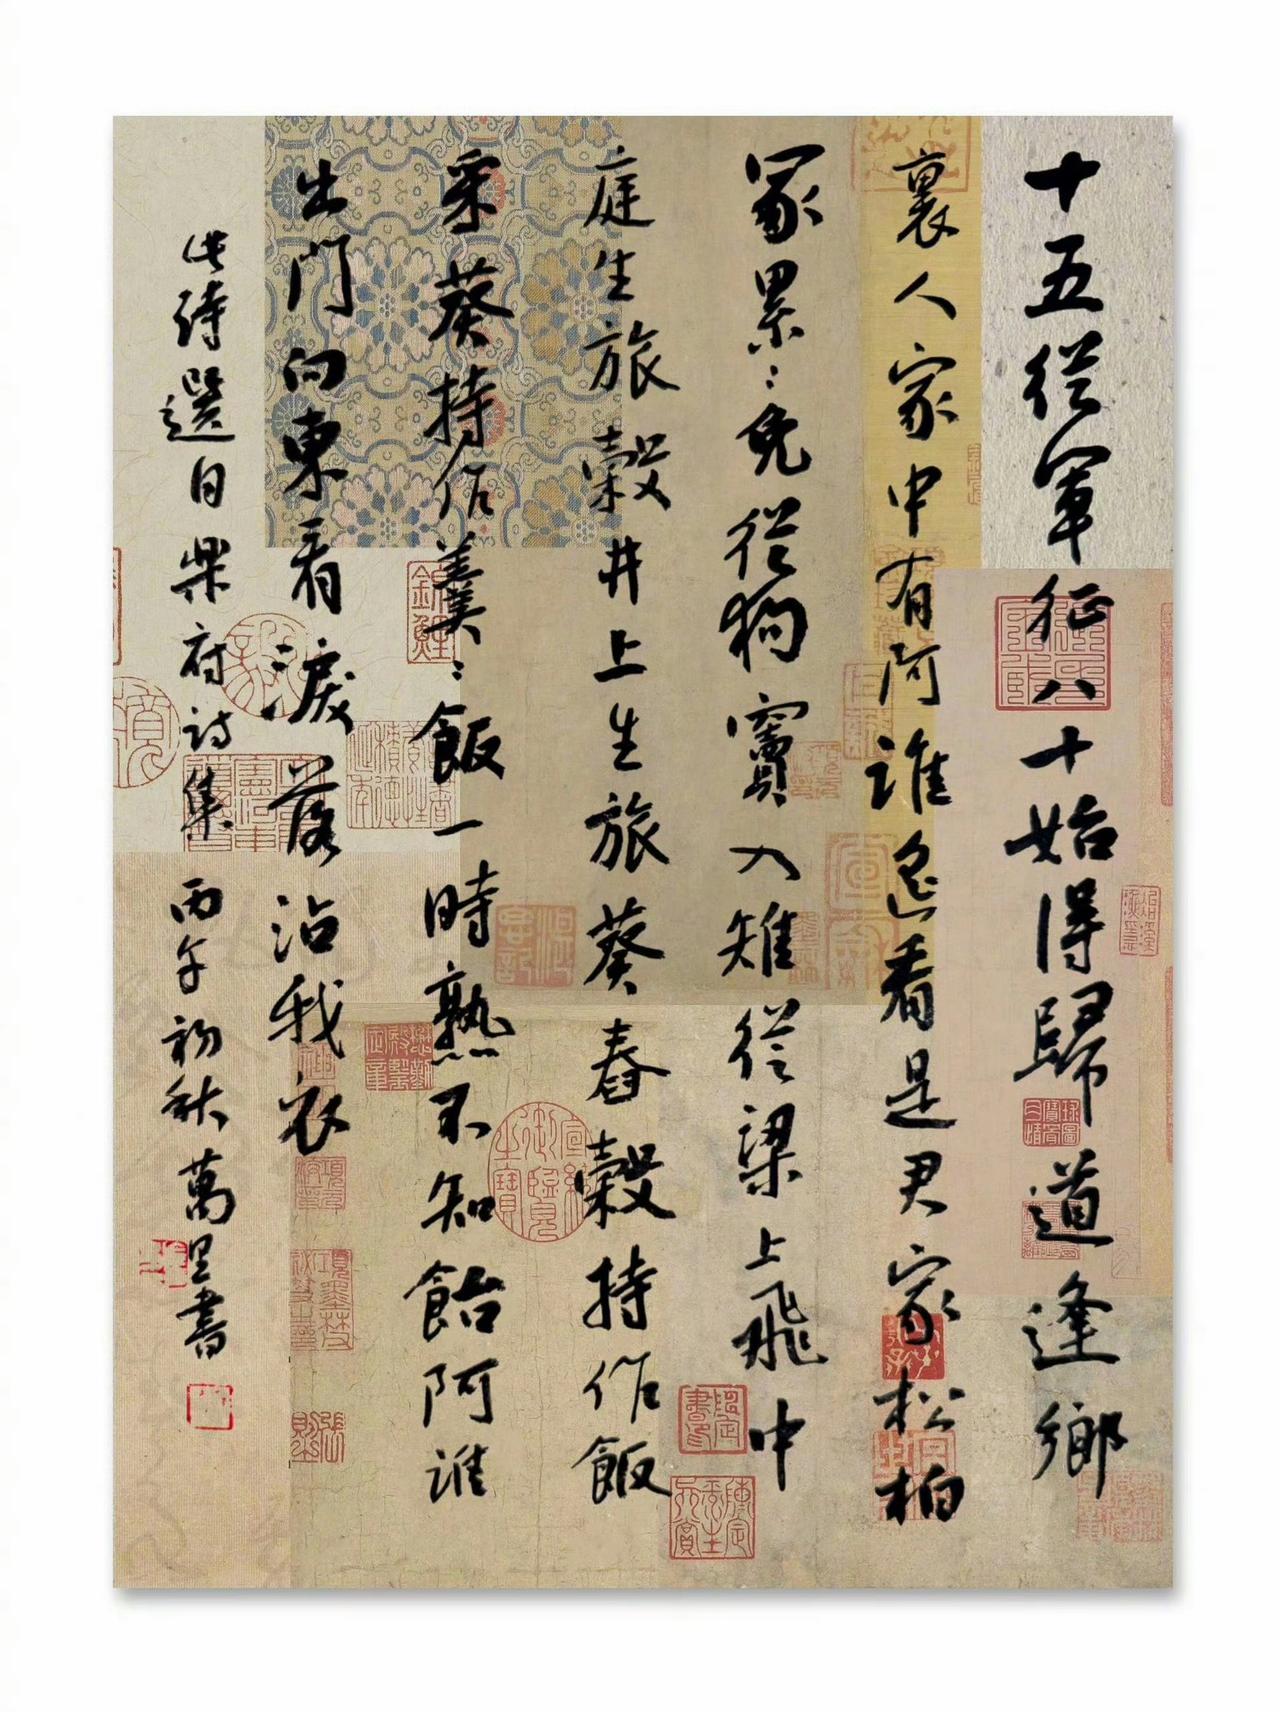 十五從軍征八十始得歸道逢鄉
裏人家中有阿誰遙看是君家松柏
冢累〻兔從狗竇入雉從梁上飛中
庭生旅穀井上生旅葵舂穀持作飯
采葵持作羹〻飯一時熟不知飴阿誰
出門向東看淚落沾我衣
此詩選自樂府詩集 丙午初秋萬里書